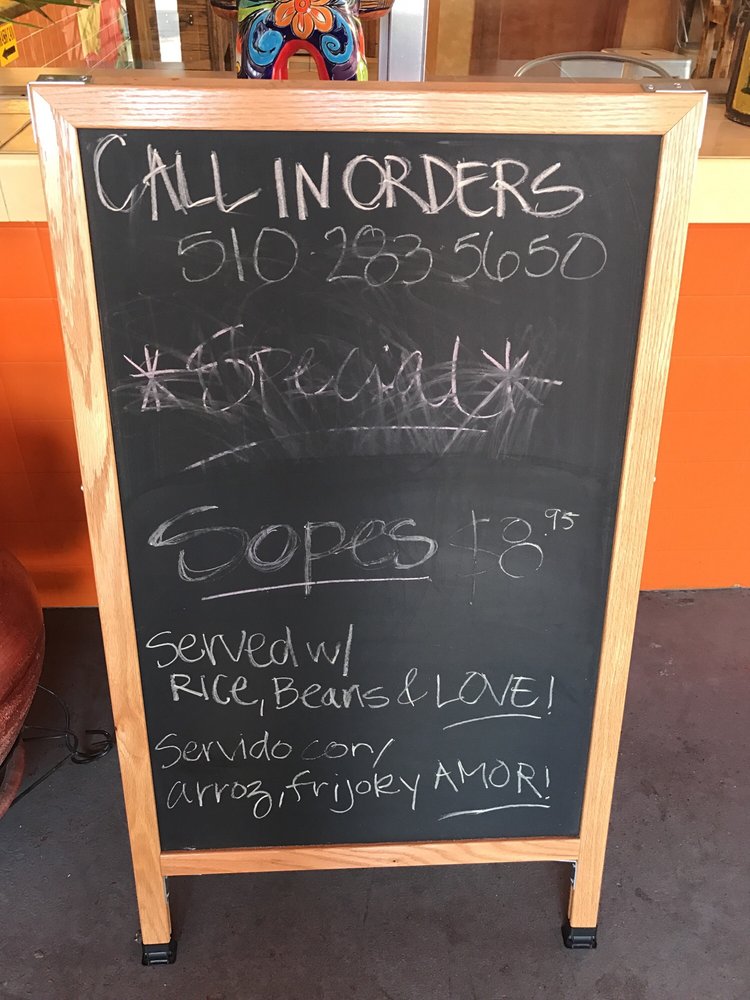 CALL IN ORDERS
510.283.5650
*Special*
Sopes $8.95
Served w/
RICE, Beans & LOVE!
Servido con/
arroz, frijol y AMOR!